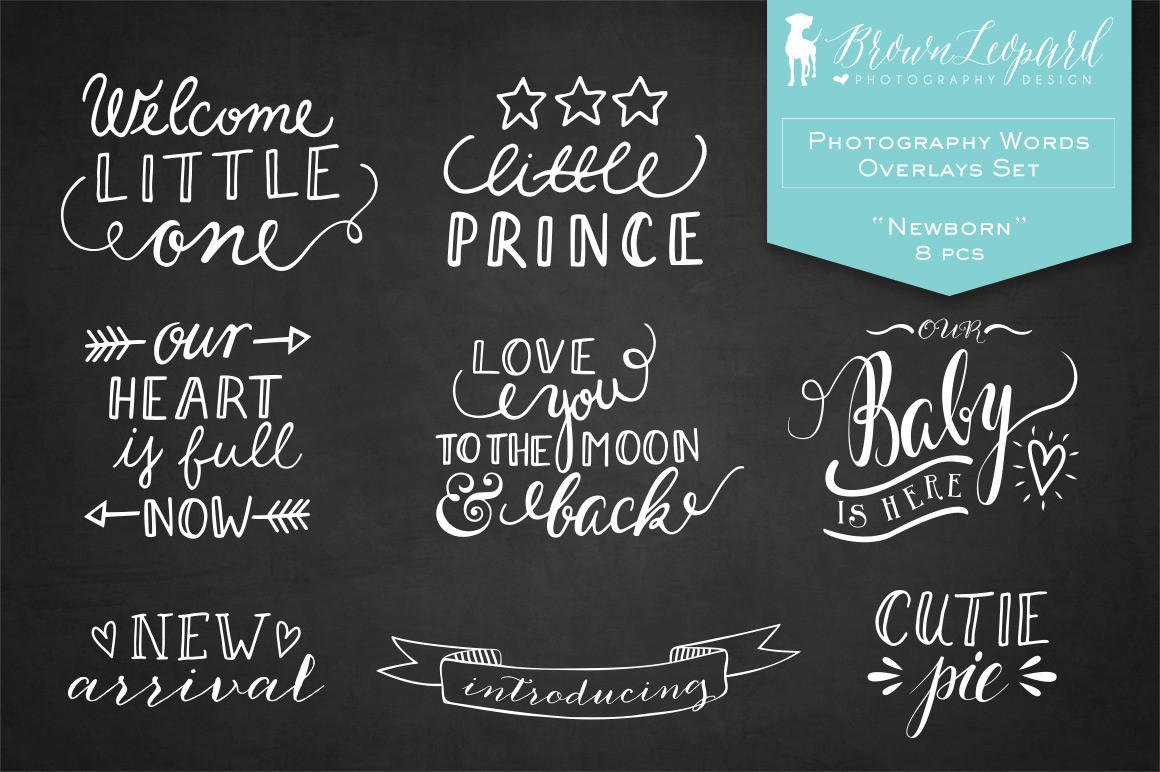 BrownLeopard
PHOTOGRAPHY DESIGN
PHOTOGRAPHY WORDS
OVERLAYS SET
“NEWBORN”
8 PCS
Welcome
LITTLE
one
little
PRINCE
our
HEART
is full
NOW
LOVE
you
TO THE MOON
& back
OUR
Baby
IS HERE
NEW
arrival
introducing
CUTIE
pie